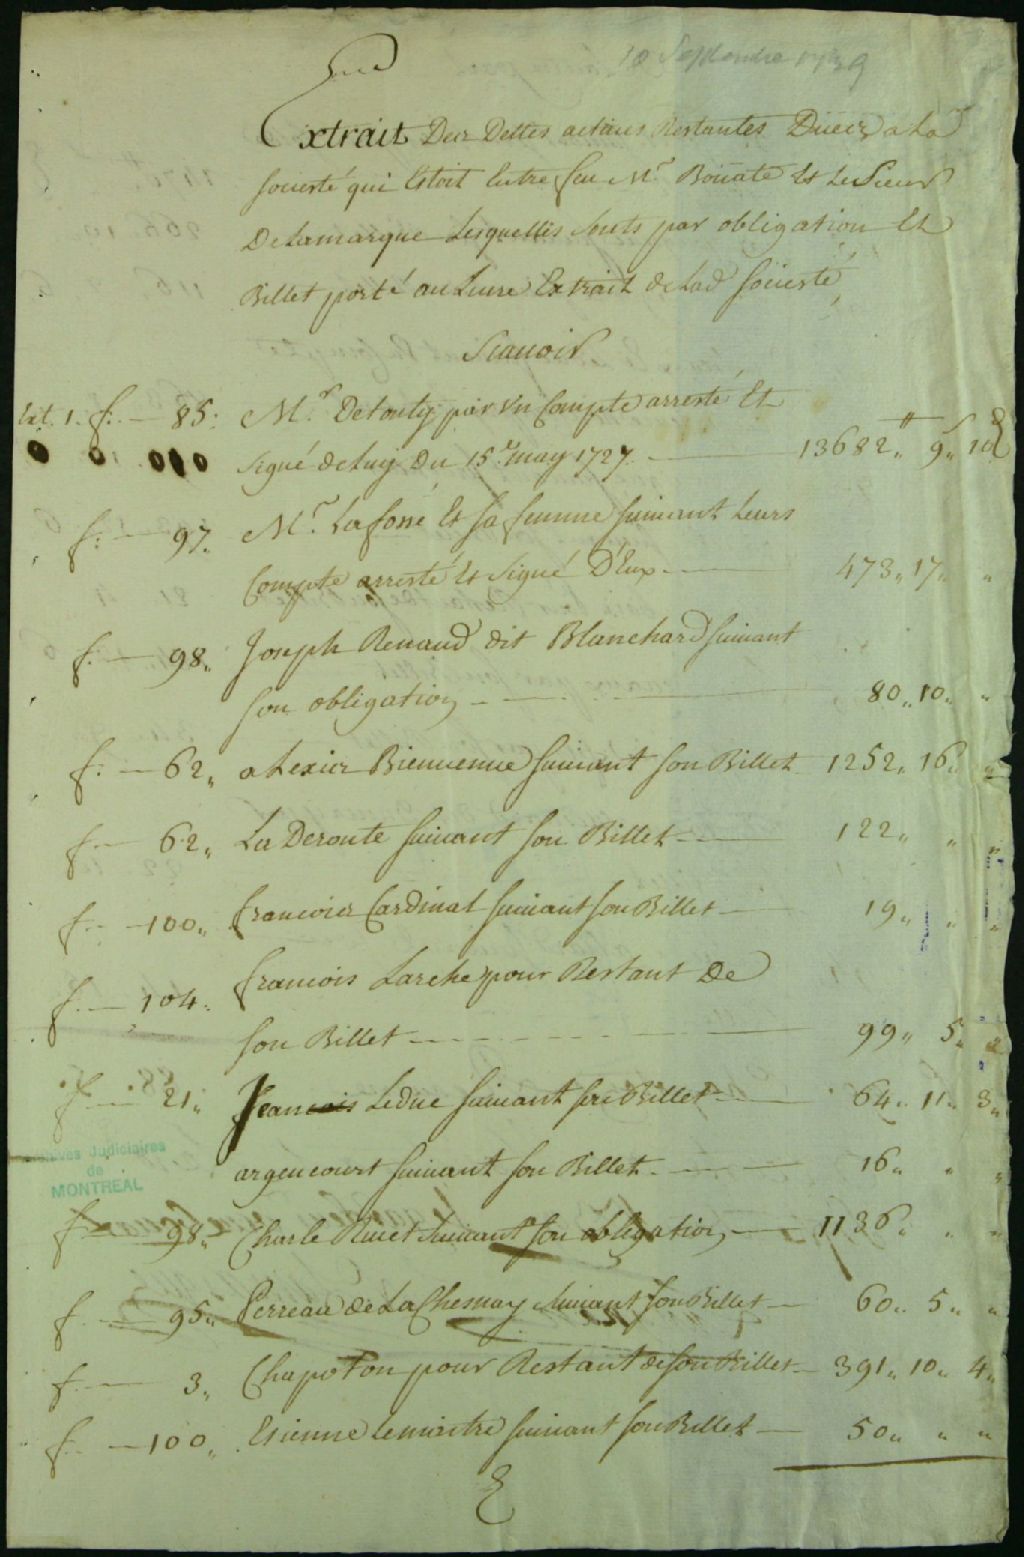 10 Septembre 1739
Extrait Des Dettes actives Restantes Dues a La
societé qui Estoit Entre feu Mr Boüate Et Le Sieur
Delamarque Lesquelles sonts par obligation Et
Billet porté au Livre Extrait de Lad societé
Scauoir
f. — 85. Mr. Detonty par Vn Compte arresté Et
signé de Luy Du 15e. may 1727 — 13682" 9s 10d
f. — 97. Mr. Lafosse Et sa femme suiuant Leurs
Compte arresté Et signé D'Eux — 473" 17" "
f. — 98" Joseph Renaud dit Blanchard suiuant
son obligation — 80" 10" "
f. — 62" alexis Bienuenue suiuant son Billet 1252" 16" "
f. — 62" La Deroute suiuant son Billet — 122" " "
f. — 100" francois Cardinal suiuant son Billet — 19" " "
f. — 104. francois Larche pour Restant de
son Billet — 99" 5" "
f. — 21" Jean Leduc suiuant son Billet — 64" 11" 3"
argencourt suiuant son Billet — 16" " "
Archives Judiciaires
de
MONTREAL
f. — 98" Charle Ruet suiuant son obligation — 1136" " "
f. — 95" Perreau de La Chesnay suiuant son Billet — 60" 5" "
f. — 3" Chapoton pour Restant de son Billet — 391" 10" 4"
f. — 100" Etienne Lemaitre suiuant son Billet — 50" " "